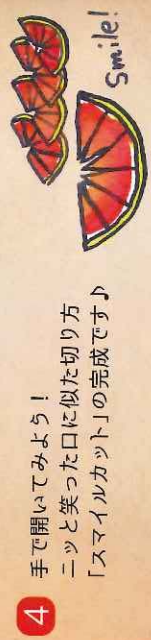 4
手で開いてみよう！
ニッと笑った口に似た切り方
「スマイルカット」の完成です♪
Smile!